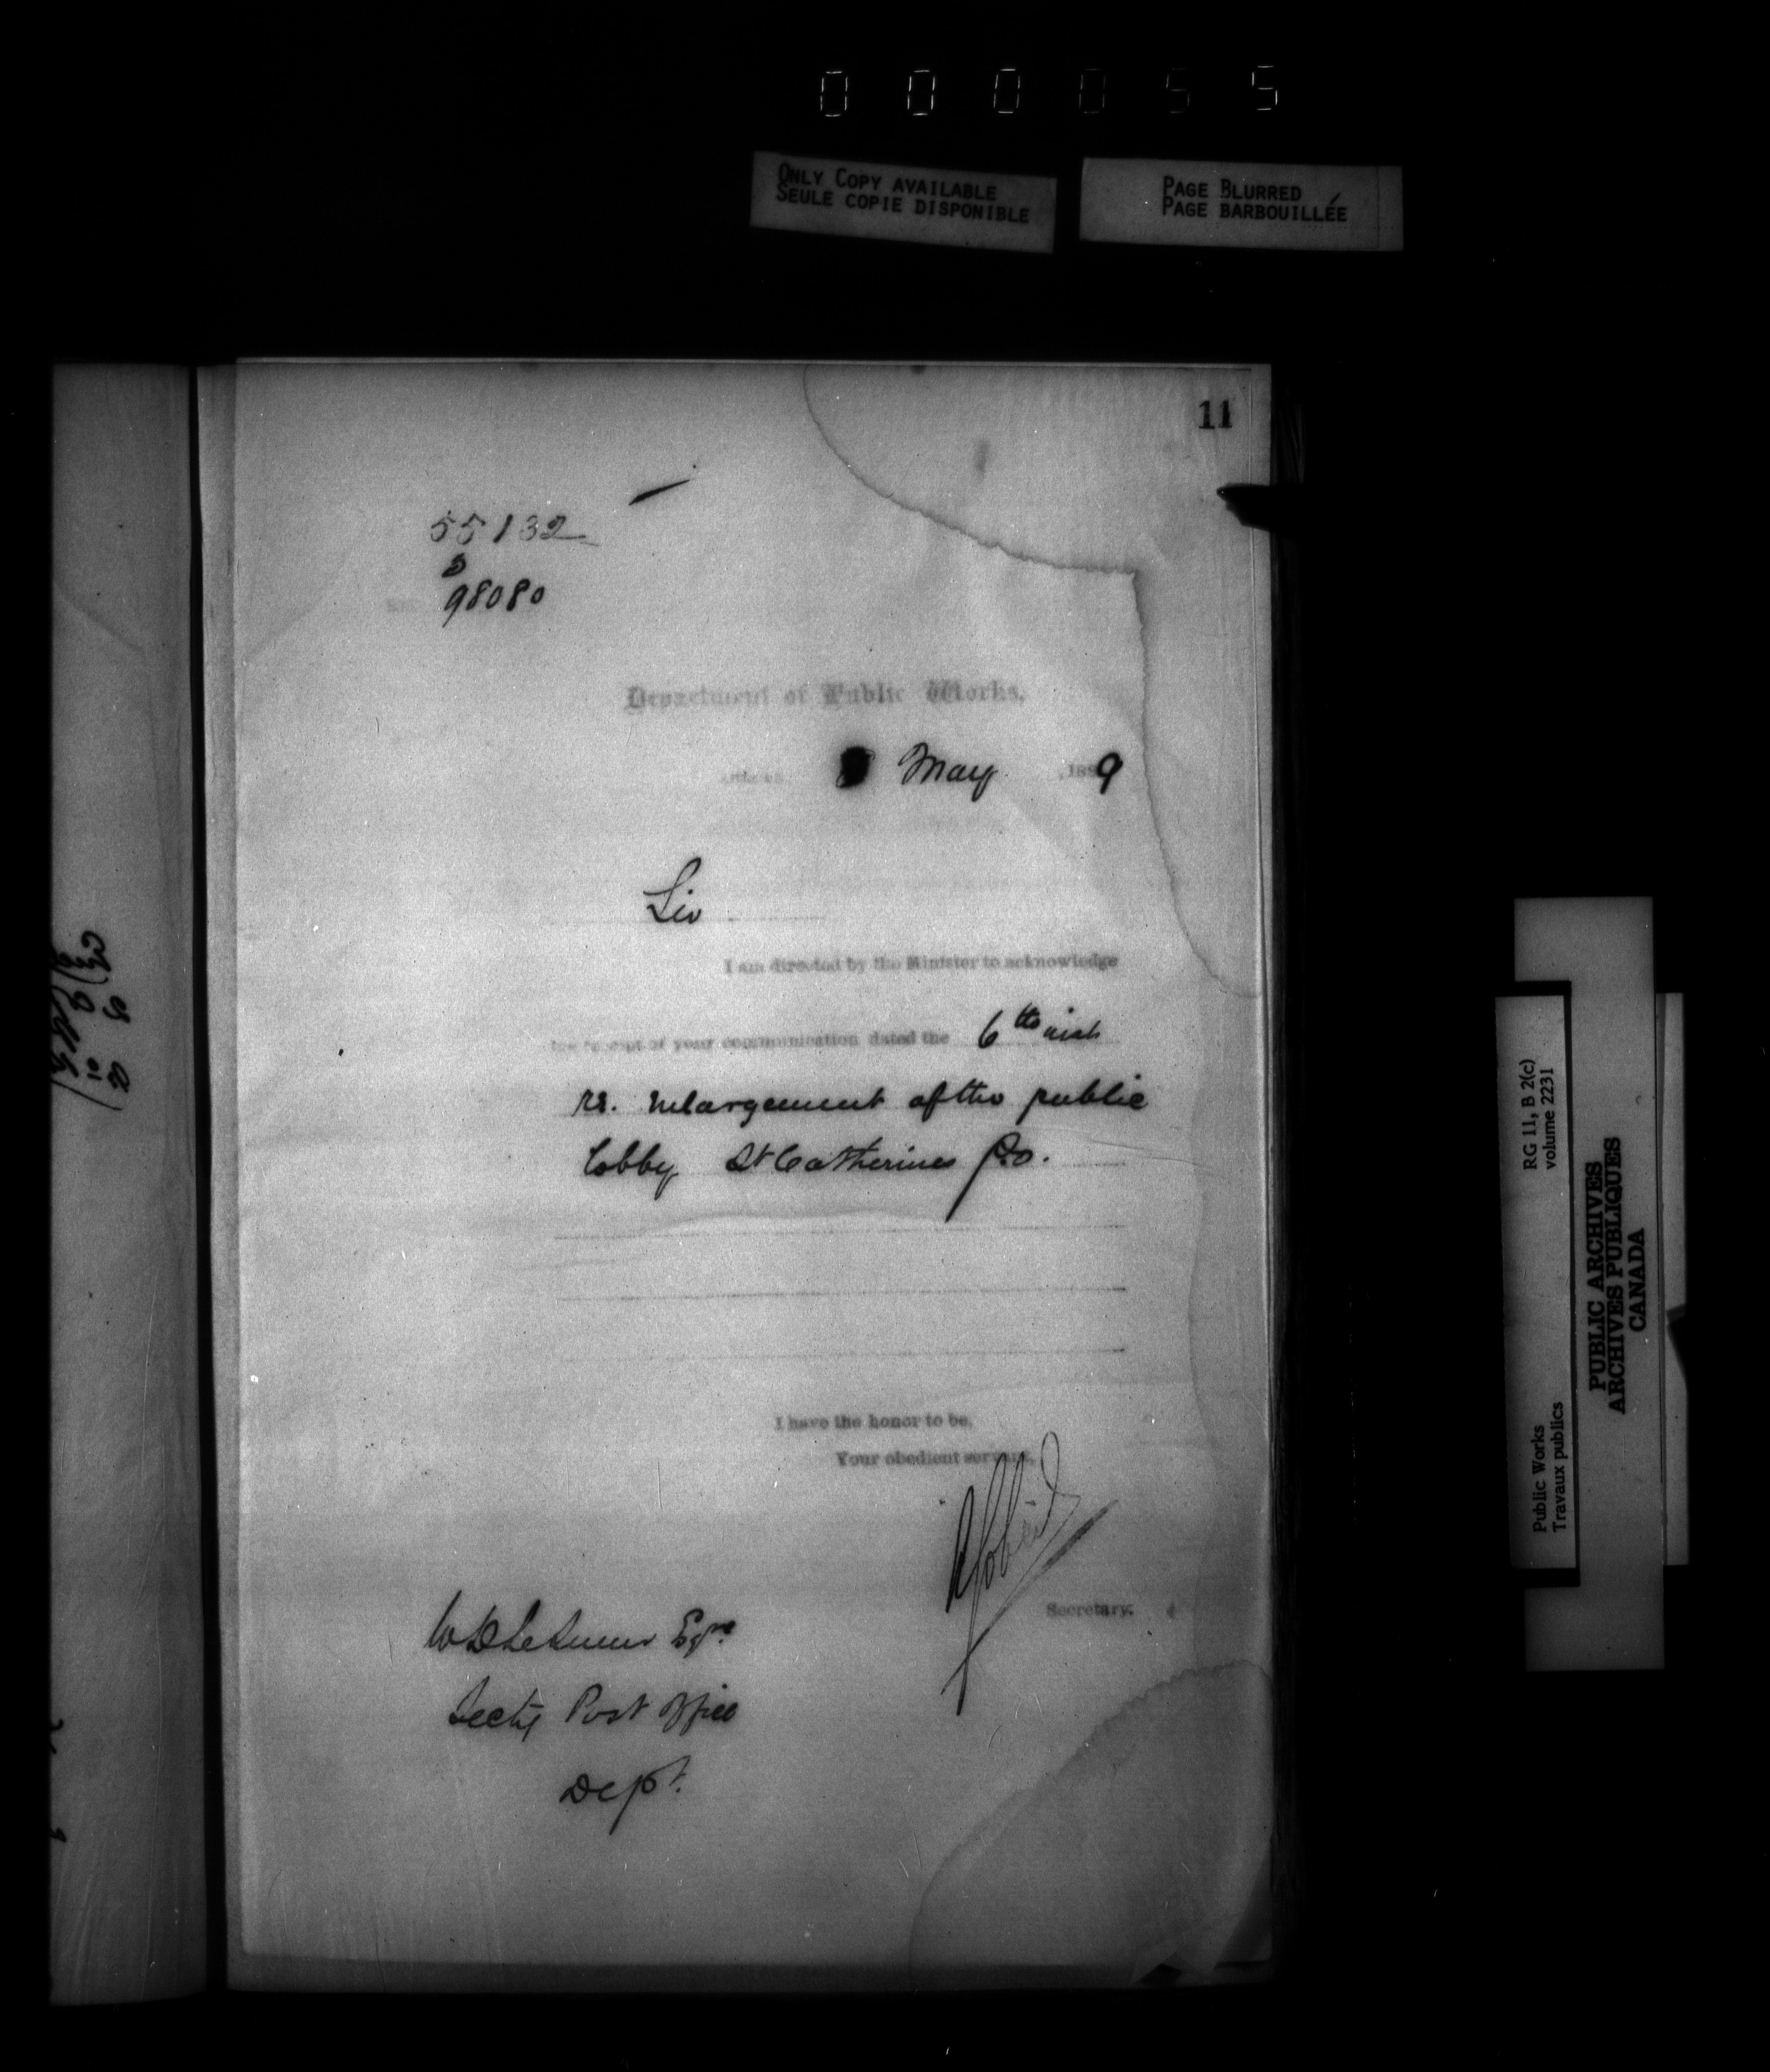 000055
ONLY COPY AVAILABLE
SEULE COPIE DISPONIBLE
PAGE BLURRED
PAGE BARBOUILLÉE
11
55132
98080
Department of Public Works.
Ottawa, May 1889
Sir
I am directed by the Minister to acknowledge
the receipt of your communication dated the 6th inst
re. enlargement of the public
lobby St Catherines P.O.
I have the honor to be,
Your obedient servant,
Secretary.
Esqre
Secty Post Office
Dept.
RG 11, B 2(c)
volume 2231
Public Works
Travaux publics
PUBLIC ARCHIVES
ARCHIVES PUBLIQUES
CANADA